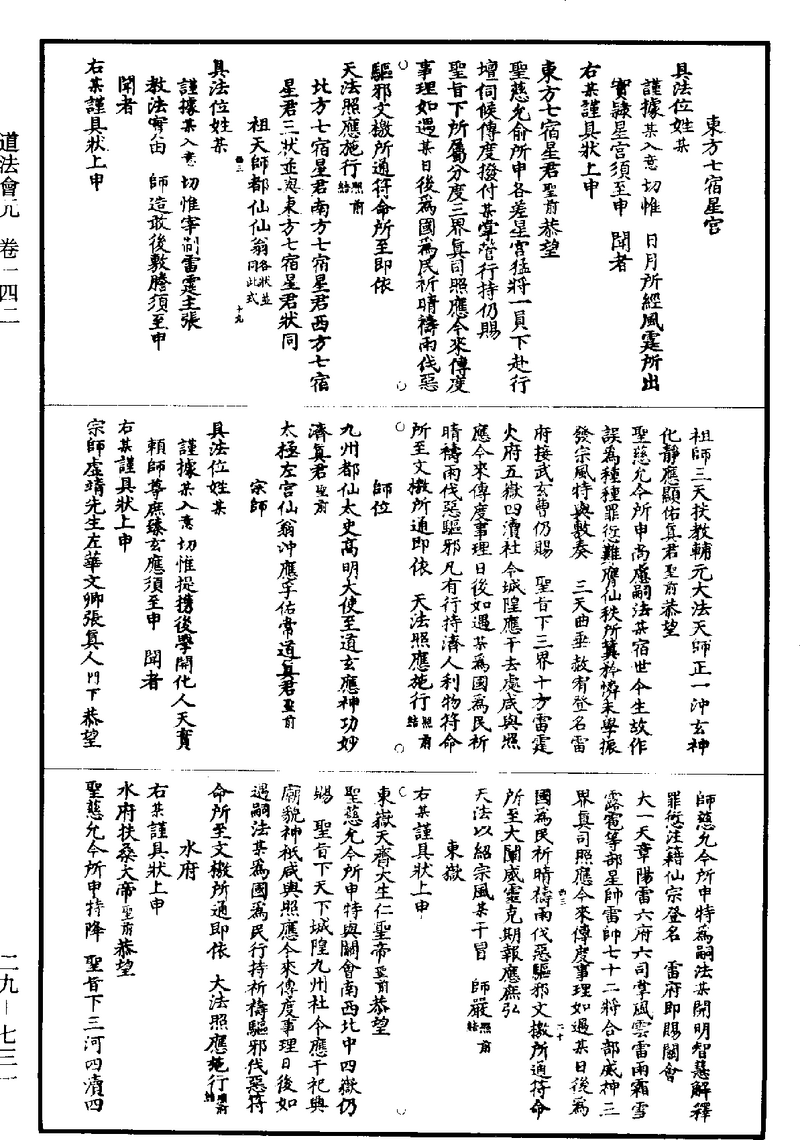 道法會元 卷一四二
東方七宿星宮
具法位姓某
謹據某入意 切惟 日月所經風霆所出
實隷星宮須至申 聞者
右某謹具狀上申
東方七宿星君聖前恭望
聖慈允俞所申各差星官猛將一員下赴行
壇伺候傳度撥付某掌管行持仍賜
聖旨下所屬分度三界真司照應今來傳度
事理如遇某日後爲國爲民祈晴禱雨伐惡
驅邪文檄所通符命所至即依
天法照應施行照前結
北方七宿星君南方七宿星君西方七宿
星君三狀並與東方七宿星君狀同
祖天師都仙仙翁各狀並同此式
十九
具法位姓某
謹據某入意 切惟宰制雷霆主張
教法實由 師造敢後敷謄須至申
聞者
右某謹具狀上申
祖師三天扶教輔元大法天師正一沖玄神
化靜應顯佑真君聖前恭望
聖慈允令所申尚慮嗣法某宿世今生故作
誤爲種種罪愆難膺仙秩所冀矜憐末學振
發宗風特與敷奏 三天曲垂赦宥登名雷
府接武玄曹仍賜 聖旨下三界十方雷霆
火府五嶽四瀆社令城隍應干去處咸與照
應今來傳度事理日後如遇某爲國爲民祈
晴禱雨伐惡驅邪凡有行持濟人利物符命
所至文檄所通即依 天法照應施行照前結
師位
九州都仙太史高明大使至道玄應神功妙
濟真君聖前
太極左宮仙翁沖應孚佑常道真君聖前
宗師
具法位姓某
謹據某入意 切惟提携後學開化人天實
賴師尊庶臻玄應須至申 聞者
右某謹具狀上申
宗師虛靖先生左華文卿張真人門下恭望
師慈允令所申特爲嗣法某開明智慧解釋
罪愆注籍仙宗登名 雷府即賜關會
大一天章陽雷六府六司掌風雲雷雨霜雪
露雹等部星帥雷帥七十二將合部威神三
界真司照應今來傳度事理如遇某日後爲
國爲民祈晴禱雨伐惡驅邪文檄所通符命
二十
所至大闡威靈克期報應庶弘
天法以紹宗風某干冒 師嚴照前結
東嶽
右某謹具狀上申
東嶽天齊大生仁聖帝聖前恭望
聖慈允令所申特與關會南西北中四嶽仍
賜 聖旨下天下城隍九州社令應干祀典
廟貌神祇咸與照應今來傳度事理日後如
遇嗣法某爲國爲民行持祈禱驅邪伐惡符
命所至文檄所通即依 大法照應施行照前結
水府
右某謹具狀上申
水府扶桑大帝聖前恭望
聖慈允令所申特降 聖旨下三河四瀆四
二九－七三一